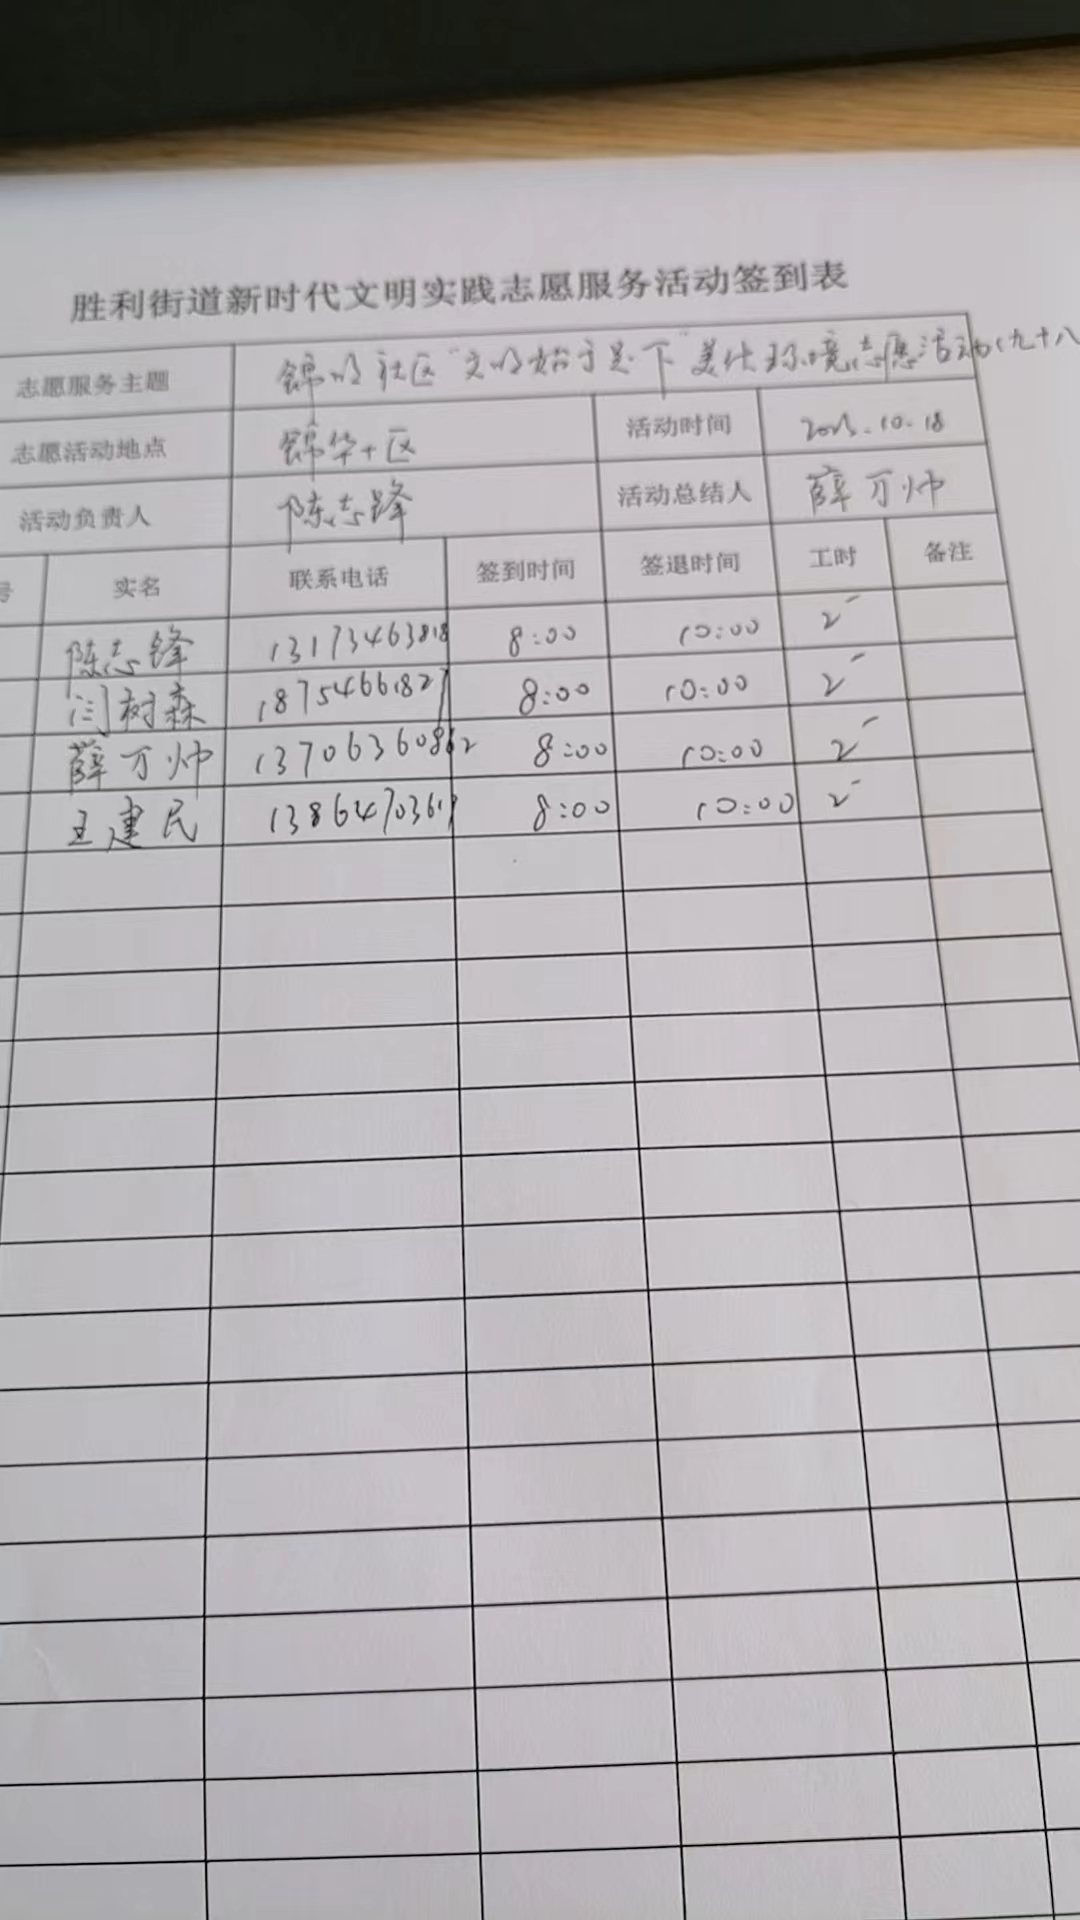 胜利街道新时代文明实践志愿服务活动签到表
志愿服务主题 锦明社区"文明始于足下"美化环境志愿活动(九十八
志愿活动地点 锦华十区 活动时间 10.18
活动负责人 陈志锋 活动总结人 薛万帅
号 实名 联系电话 签到时间 签退时间 工时 备注
陈志锋 13173463818 8:00 10:00 2
闫树森 18754661827 8:00 10:00 2
薛万帅 8:00 10:00 2
王建民 8:00 10:00 2